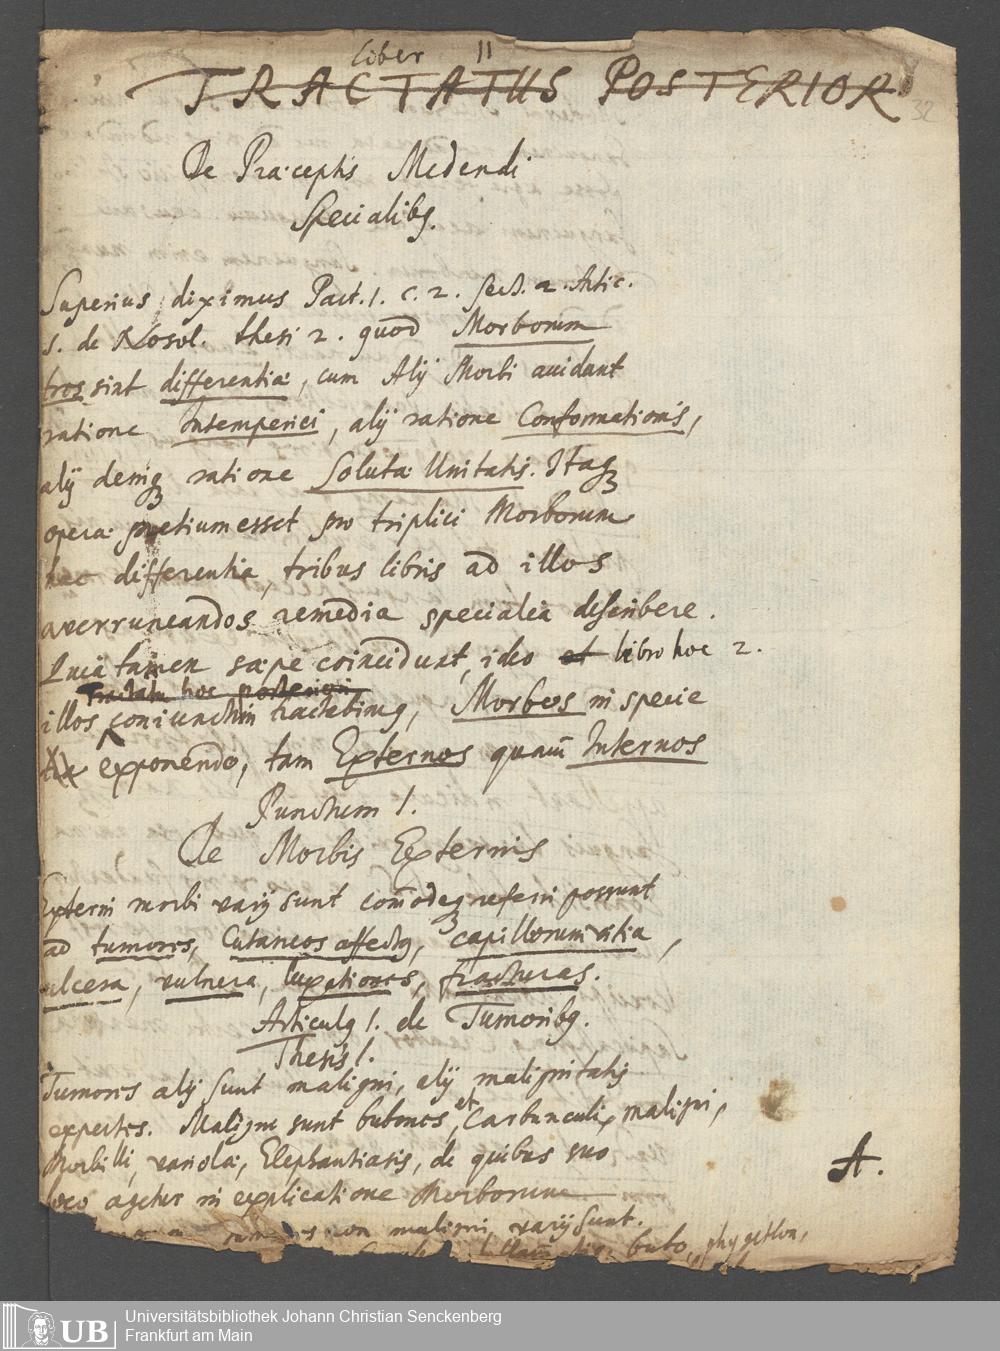 Liber II
TRACTATUS POSTERIOR
32
De Præceptis Medendi
Specialibg.
Superius diximus Part. 1. c. 2. Sect. 2. Artic.
s. de Nosol. thesi 2. quod Morborum
tres sint differentiæ, cum Alij Morbi accidant
ratione Intemperiei, alij ratione Conformationis,
alij deniq ratione Solutæ Unitatis. Itaq
operæ pretium esset pro triplici Morborum
hac differentia, tribus libris ad illos
averruncandos remedia specialia describere.
Quia tamen sæpe coincidunt, ideo et libro hoc 2.
Tractatu hoc posteriori
illos coniunctim tractabimg, Morbos in specie
exponendo, tam Externos quam Internos
Punctum 1.
De Morbis Externis
Externi morbi varij sunt com̄odeq referri possunt
ad tumores, Cutaneos affectg, capillorum vitia,
ulcera, vulnera, luxationes, fracturas.
Articulg 1. de Tumoribg.
Thesis 1.
Tumores alij sunt maligni, alij malignitatis
expertes. Maligni sunt bubones, et Carbunculi, maligni,
Morbilli, variolæ, Elephantiasis, de quibus suo
loco agetur in explicatione Morborum
A.
non maligni varij sunt.
bubo, phygethlon,
Universitätsbibliothek Johann Christian Senckenberg
Frankfurt am Main
UB